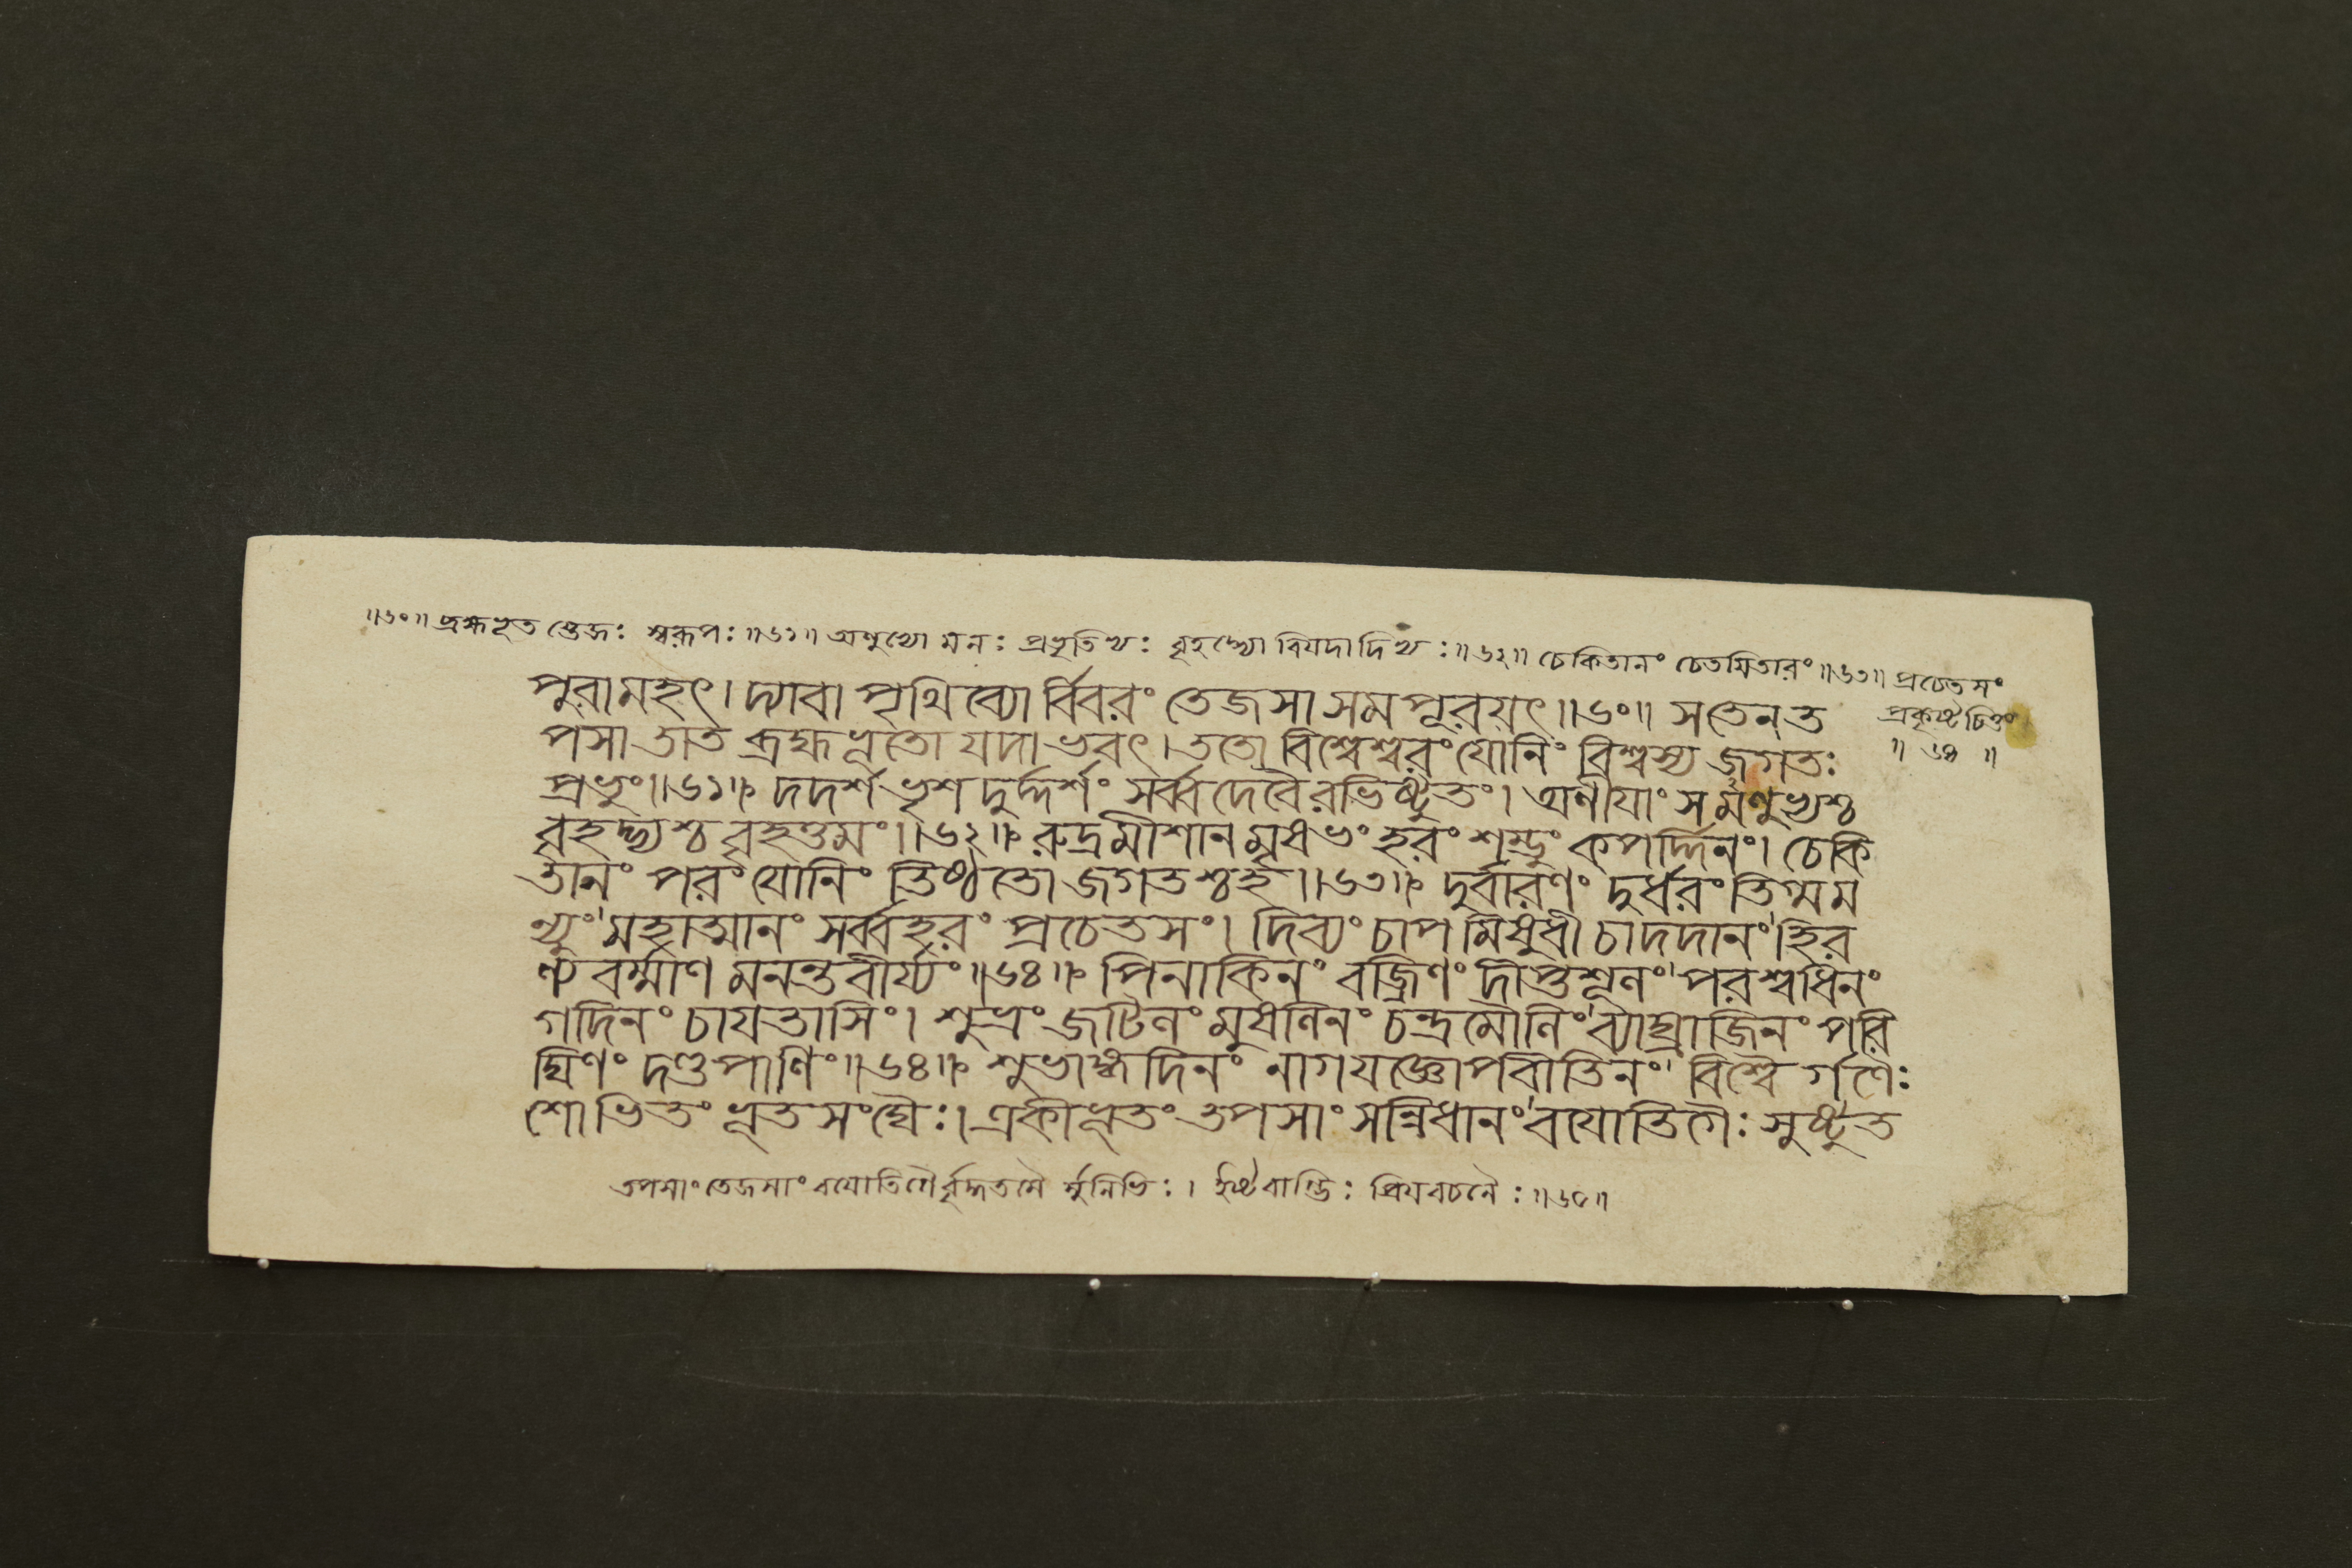 ॥৬০॥ ব্রহ্মভূত স্তেজঃ স্বরূপঃ ॥৬১॥ অণুথো মনঃ প্রভৃতিথঃ বৃহদ্ভ্যো বিযদাদিথঃ ॥৬২॥ চেকিতানং চেতযিতারং ॥৬৩॥ প্রচেতসং
প্রকৃষ্টচিত্তং
॥ ৬৪ ॥
পুরামহৎ। দ্যাবা পৃথিব্যো র্বিবরং তেজসা সমপূরয়ৎ॥৬০॥ সতেনত
পসা তাত ব্রহ্মভূতো যদাভবৎ। ততো বিশ্বেশ্বরং যোনিং বিশ্বস্য জগতঃ
প্রভুং॥৬১॥ দদর্শ ভৃশ দুর্দ্দর্শং সর্ব্বদেবৈরভিষ্টুতং। অণীযাং সমণুভ্যশ্চ
বৃহদ্ভ্যশ্চ বৃহত্তমং॥৬২॥ রুদ্রমীশান মৃষভং হরং শম্ভুং কপর্দ্দিনং। চেকি
তানং পরং যোনিং তিষ্ঠতো জগতশ্চহ॥৬৩॥ দুর্বারণং দুর্ধরং তিগ্মম
ন্যুং মহাত্মানং সর্ব্বহরং প্রচেতসং। দিব্যং চাপ মিষুধী চাদদানং হির
ণ্য বর্ম্মাণ মনন্তবীর্য্যং॥৬৪॥ পিনাকিনং বজ্রিণং দীপ্তশূলং পরশ্বধিনং
গদিনং চাযতাসিং। শুভ্রং জটিলং মুষলিনং চন্দ্রমৌলিং ব্যাঘ্রাজিনং পরি
ঘিণং দণ্ডপাণিং॥৬৪॥ শুভাঙ্গদিনং নাগযজ্ঞোপবীতিনং বিশ্বৈ র্গণৈঃ
শোভিতং ভূতসংঘৈঃ। একীভূতং তপসাং সন্নিধানং বযোতিগৈঃ সুষ্টুত
তপসাং তেজসাং বযোতিগৈর্বৃদ্ধতমৈ র্মুনিভিঃ। ইষ্টবাগ্ভিঃ প্রিযবচনৈঃ ॥৬৫॥